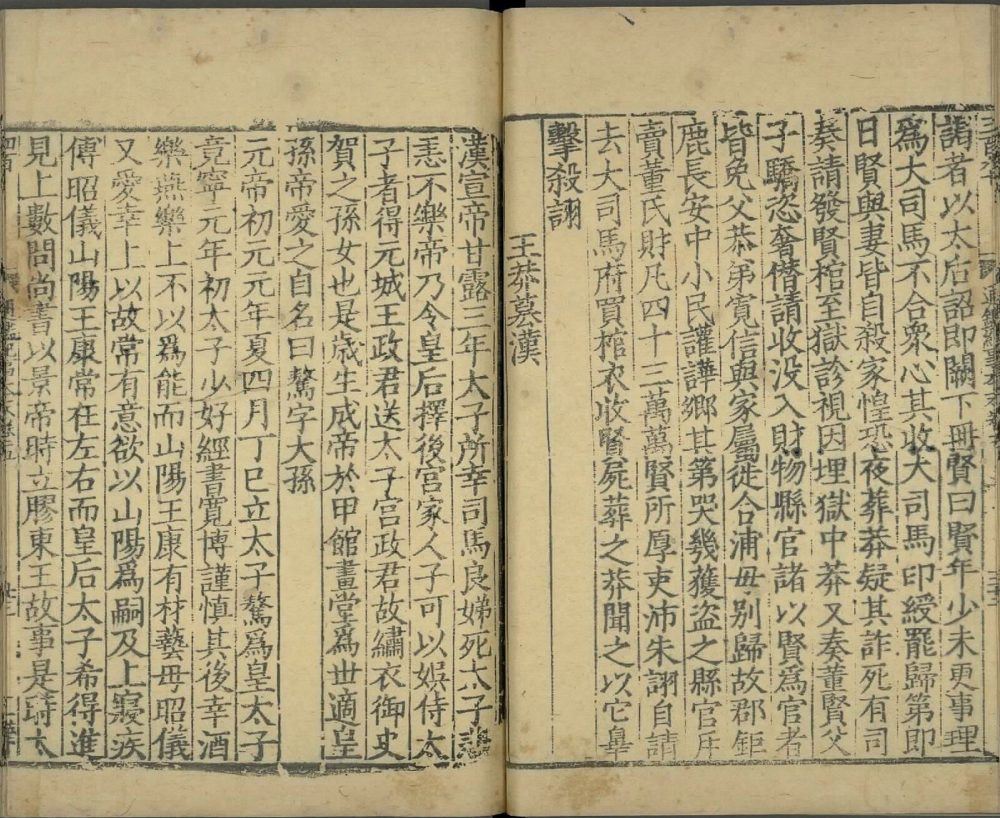 謁者以太后詔即闕下冊賢曰賢年少未更事理
爲大司馬不合衆心其收大司馬印綬罷歸第即
日賢與妻皆自殺家惶恐夜葬莽疑其詐死有司
奏請發賢棺至獄診視因埋獄中莽又奏董賢父
子驕恣奢僭請收没入財物縣官諸以賢爲官者
皆免父恭弟寛信與家屬徙合浦毋别歸故郡鉅
鹿長安中小民讙譁鄉其第哭幾獲盗之縣官斥
賣董氏財凡四十三萬萬賢所厚吏沛朱詡自請
去大司馬府買棺衣收賢屍葬之莽聞之以它辠
擊殺詡
王莽簒漢
漢宣帝甘露三年太子所幸司馬良娣死太子悲
恚不樂帝乃令皇后擇後宮家人子可以娯侍太
子者得元城王政君送太子宮政君故繡衣御史
賀之孫女也是歲生成帝於甲館畫堂爲世適皇
孫帝愛之自名曰驁字大孫
元帝初元元年夏四月丁巳立太子驁爲皇太子
竟寧元年初太子少好經書寛博謹慎其後幸酒
樂燕樂上不以爲能而山陽王康有材藝毋昭儀
又愛幸上以故常有意欲以山陽爲嗣及上寢疾
傅昭儀山陽王康常在左右而皇后太子希得進
見上數問尚書以景帝時立膠東王故事是時太